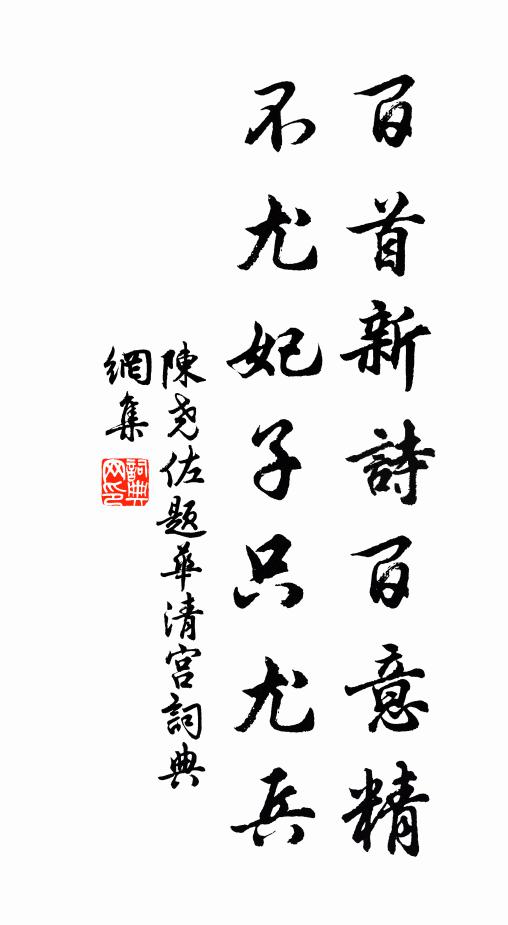 百首新詩百意精
不尤妃子只尤兵
陳堯佐題華清宮詞典
網集
詞典
网印